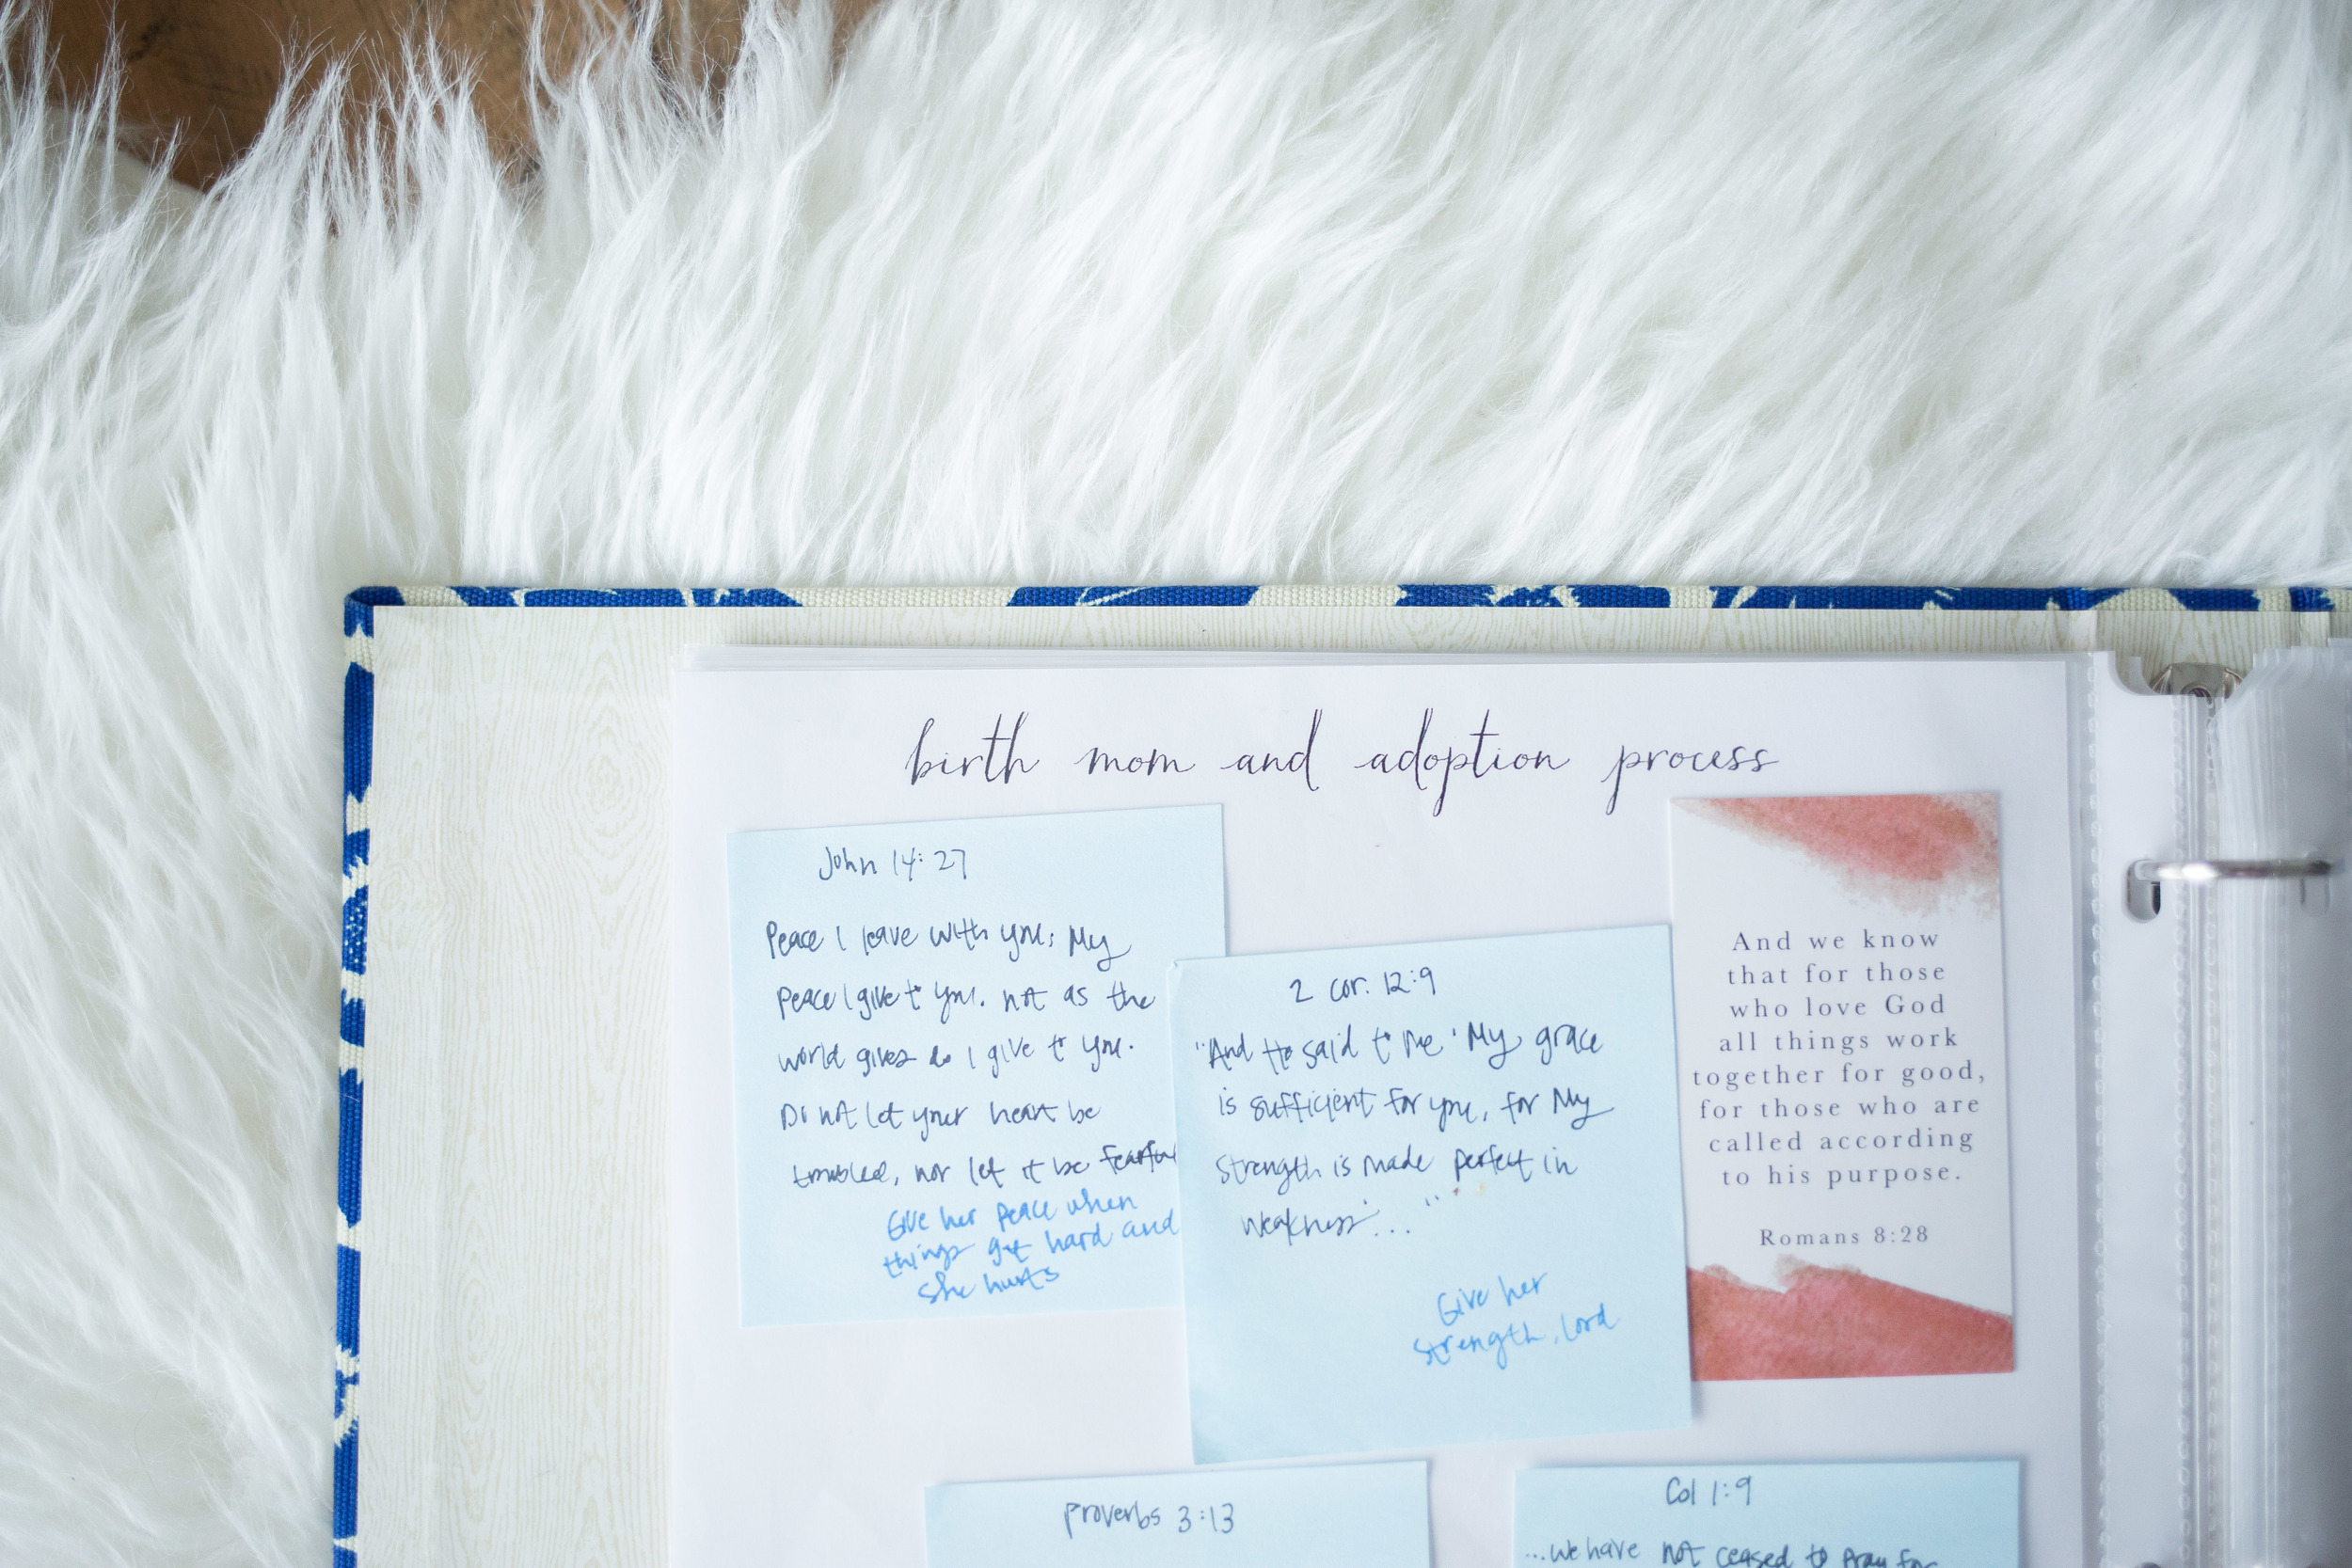 birth mom and adoption process
John 14:27
Peace I leave with you; My
peace I give to you. not as the
world gives do I give to you.
Do not let your heart be
troubled, nor let it be fearful
Give her peace when
things get hard and
she hurts
2 cor. 12:9
"And He said to me 'My grace
is sufficient for you, for My
strength is made perfect in
weakness'..."
Give her
strength, Lord
And we know
that for those
who love God
all things work
together for good,
for those who are
called according
to his purpose.
Romans 8:28
proverbs 3:13
Col 1:9
...we have not ceased to pray for